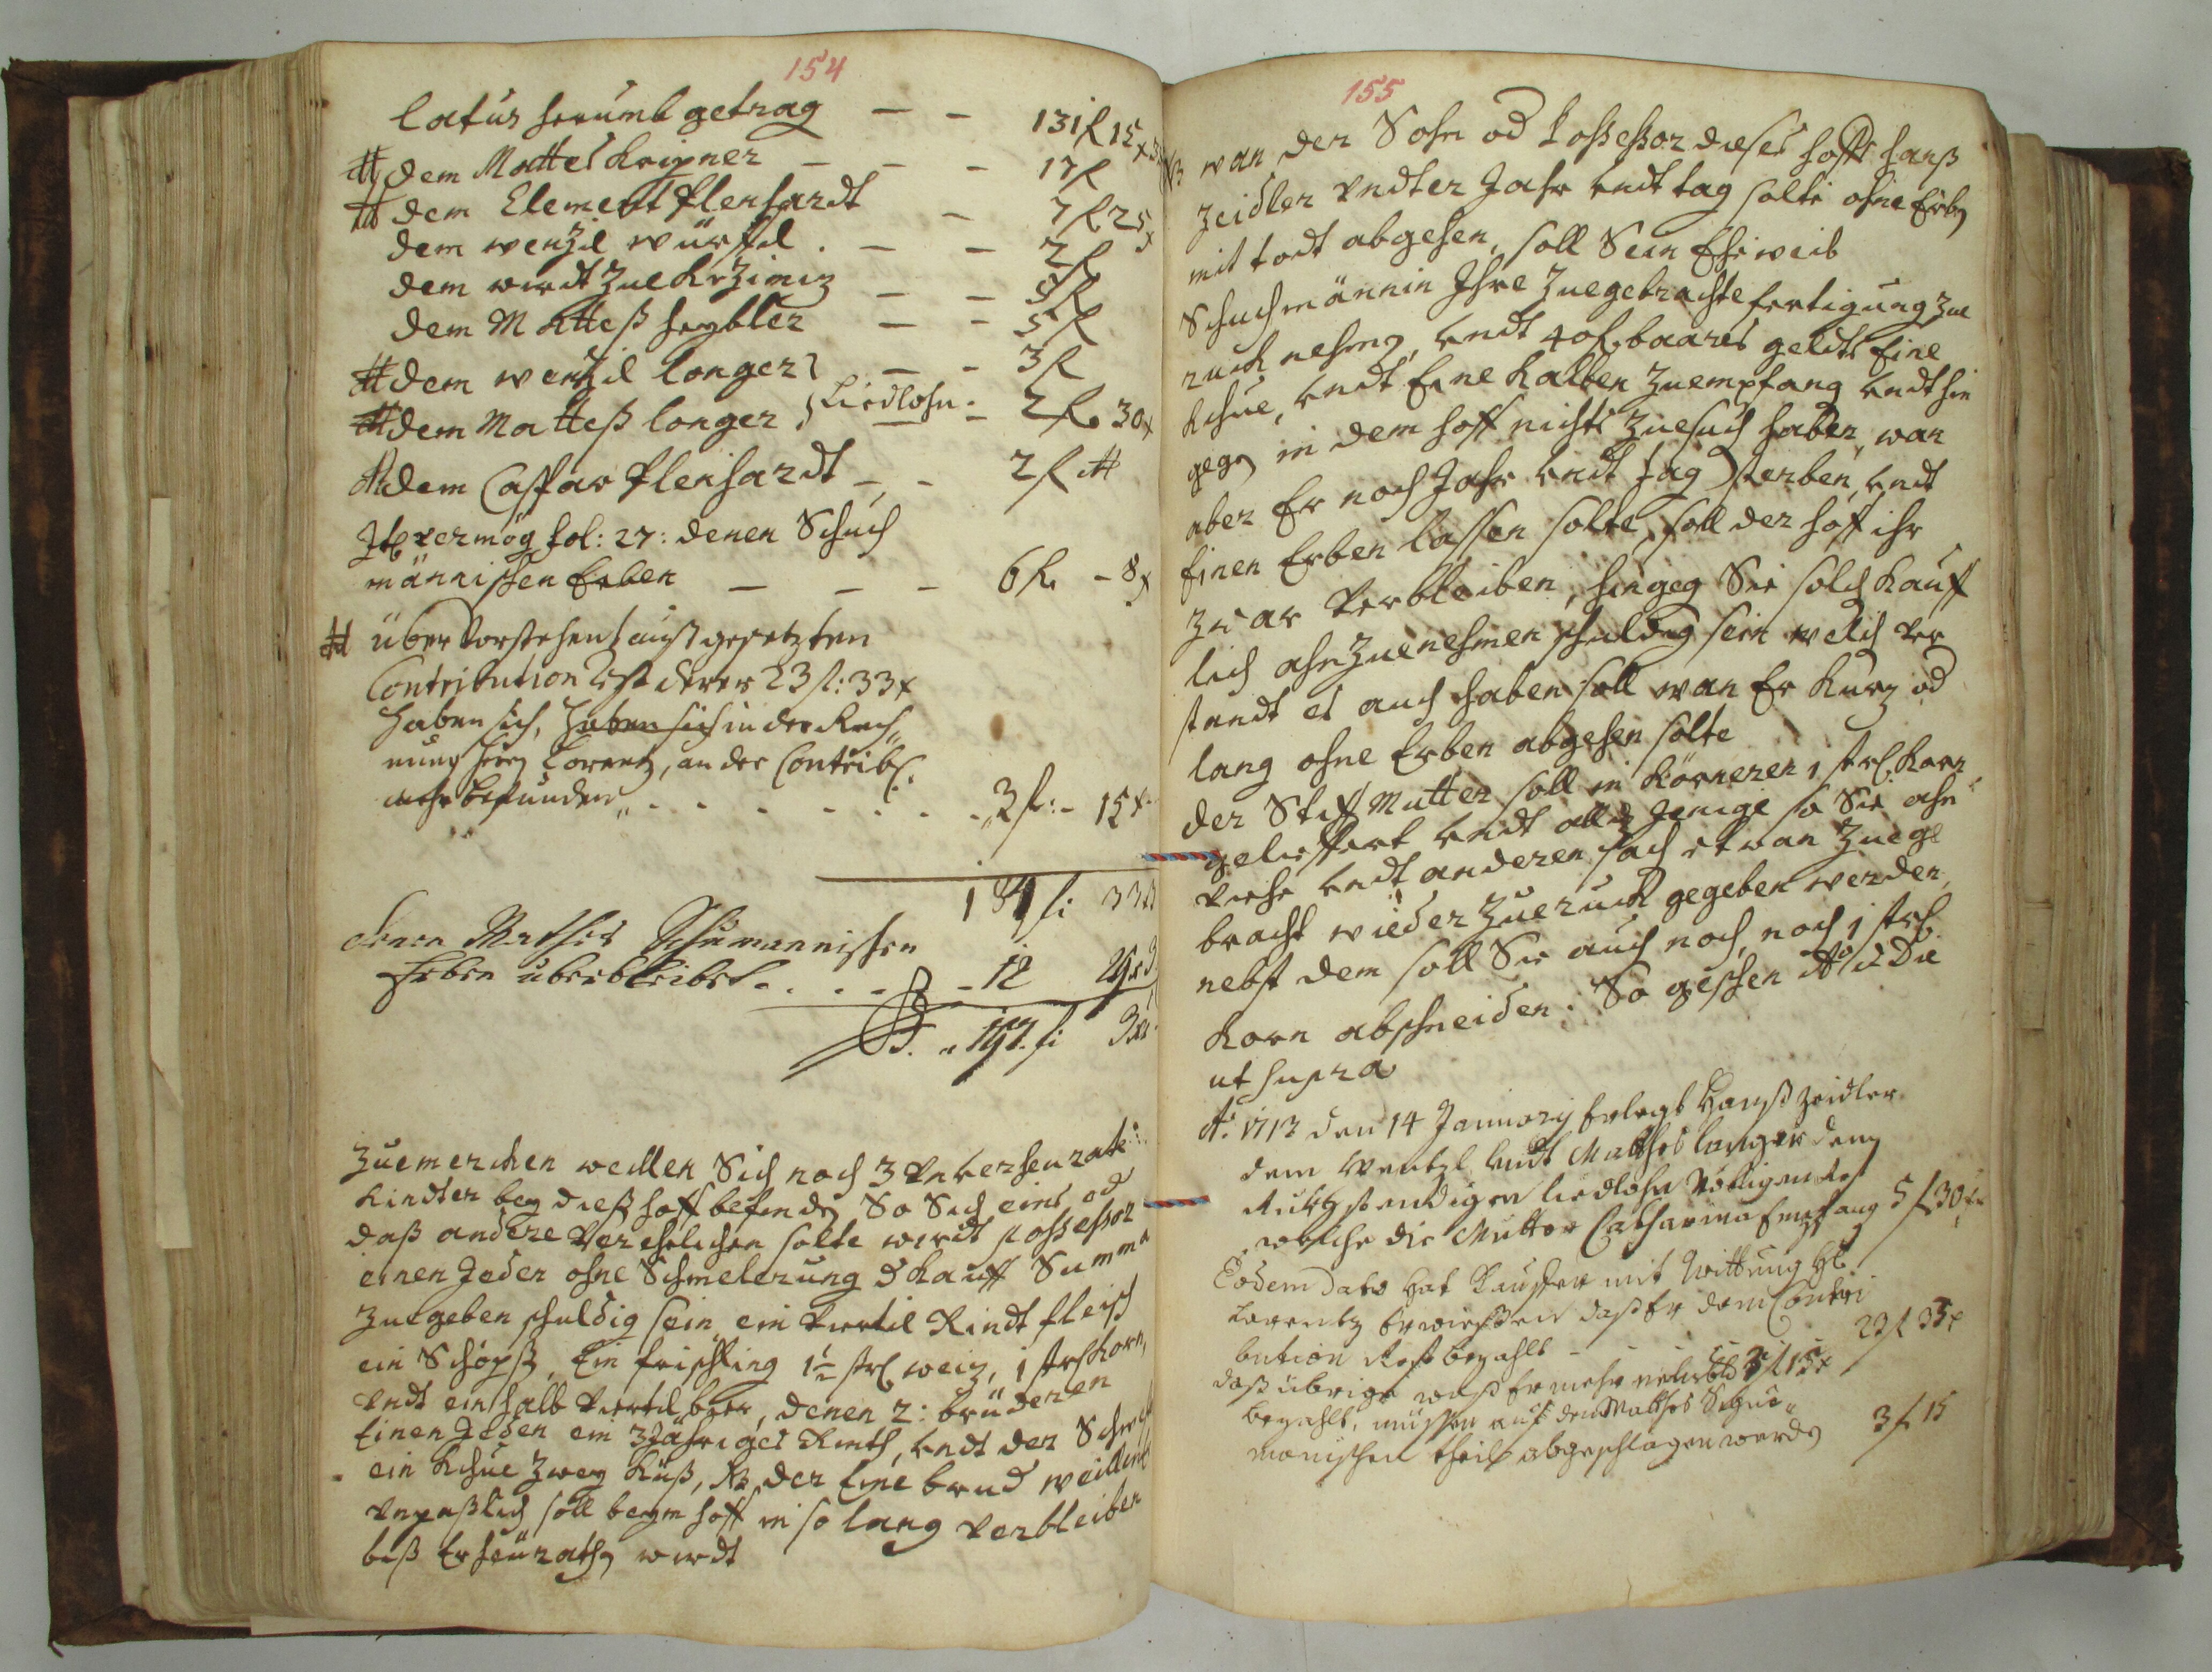 154
Latus herumb getrag — — 131 f 15 x
dem Mattes Kripner — — — 17 f
dem Clement Plenhardt — 7 f 25 x
dem wenzil würffel . — — 2 f
dem wirdt Zue Kržimiz — —
dem Matteß heybler — — 5 f
dem wenzil Longer — — 3 f
dem Matteß Longer } Liedlohn — 2 f. 30 x
dem Caspar Plenhardt — — 2 f
vermög fol: 27: denen Schuch
männischen Erben — — — 6 f. – 8 x
über Vorstehent auß gesetzten
Contribution Rest derer 23 f: 33 x
haben sich, haben sich in der Rech„
nung herrn Lorentz, an der Contrib:
mehr befunden„ . . . . . . . „ 3 f: – 15 x
denen Mathes Schumannischen
Erben überbleibet . . . . – 12
Zuemercken weillen Sich noch 3 Unverheurate
Kindter bey dießs hoff befinden So Sich eins od
daß andere Verehelichen solte wirdt possessor
einen Jeden ohne Schmelerung d Kauff Summa
Zuegeben schuldig sein ein Viertel Rindt fleisch
ein Schöpß, Ein frischling 1½ strl weiz, 1 strl Korn,
Undt ein halb Viertel bier, denen 2: brüderen
Einen Jeden ein 3 Jähriges Rindt, Undt der Schwest
ein Khue Zwey Küß, der Eine brud weillent
Unpaßlich soll beym hoff in so lang verbleiben
biß Er heürathen wirdt
155
wan der Sohn od Possessor dieses hoffs hanß
Zeidler Undter Jahr Undt tag solte ohne Erben
mit todt abgehen, soll Sein Eheweib
Schuchmännin Ihre Zuegebrachte fertigung Zue
ruck nehmen, Undt 40 f. baares geldts Eine
Khue, Undt Eine Kalben Zuempfang Undt hin
gegen in dem hoff nichts Zuesuch haben, wan
aber Er noch Jahr Undt tag sterben, Undt
Einen Erben lassen solte, soll der hoff ihr
Zwar Verbleiben, hingeg Sie solch Kauff
lich ahnZuenehmen schuldig sein welch ver
standt es auch haben soll wan Er Kurz od
lang ohne Erben abgehen solte
der Stiff Mutter soll in Körneren 1 strl Korn
geliffert Undt alles Jenige so Sie ahn
Viehe Undt anderen sach etwan Zuege
bracht wieder Zueruck gegeben werden,
nebst dem soll Sie auch noch, noch 1 strl
Korn abschneiden. So geschehen Aõ d Die
ut supra
Aõ. 1713 den 14 January Erlegt Hanß Zeidler
dem Wentzl Undt Matthes Langer deng
Rückstendigen liedlohn Völligen Rest
welche die Mutter Catharina Empfang 5 f 30 x
Eodem dato hat Kauffer mit Quittung H
Lorentz Erwiesen daß Er dem Contri
bution Rest bezahlt – – – 23 f 33 x
daß übrige waß Er mehr 3 f 15 x
bezahlt, müssen auf den Matthes Schue„
manischen theil abgeschlagen werden 3 f 15